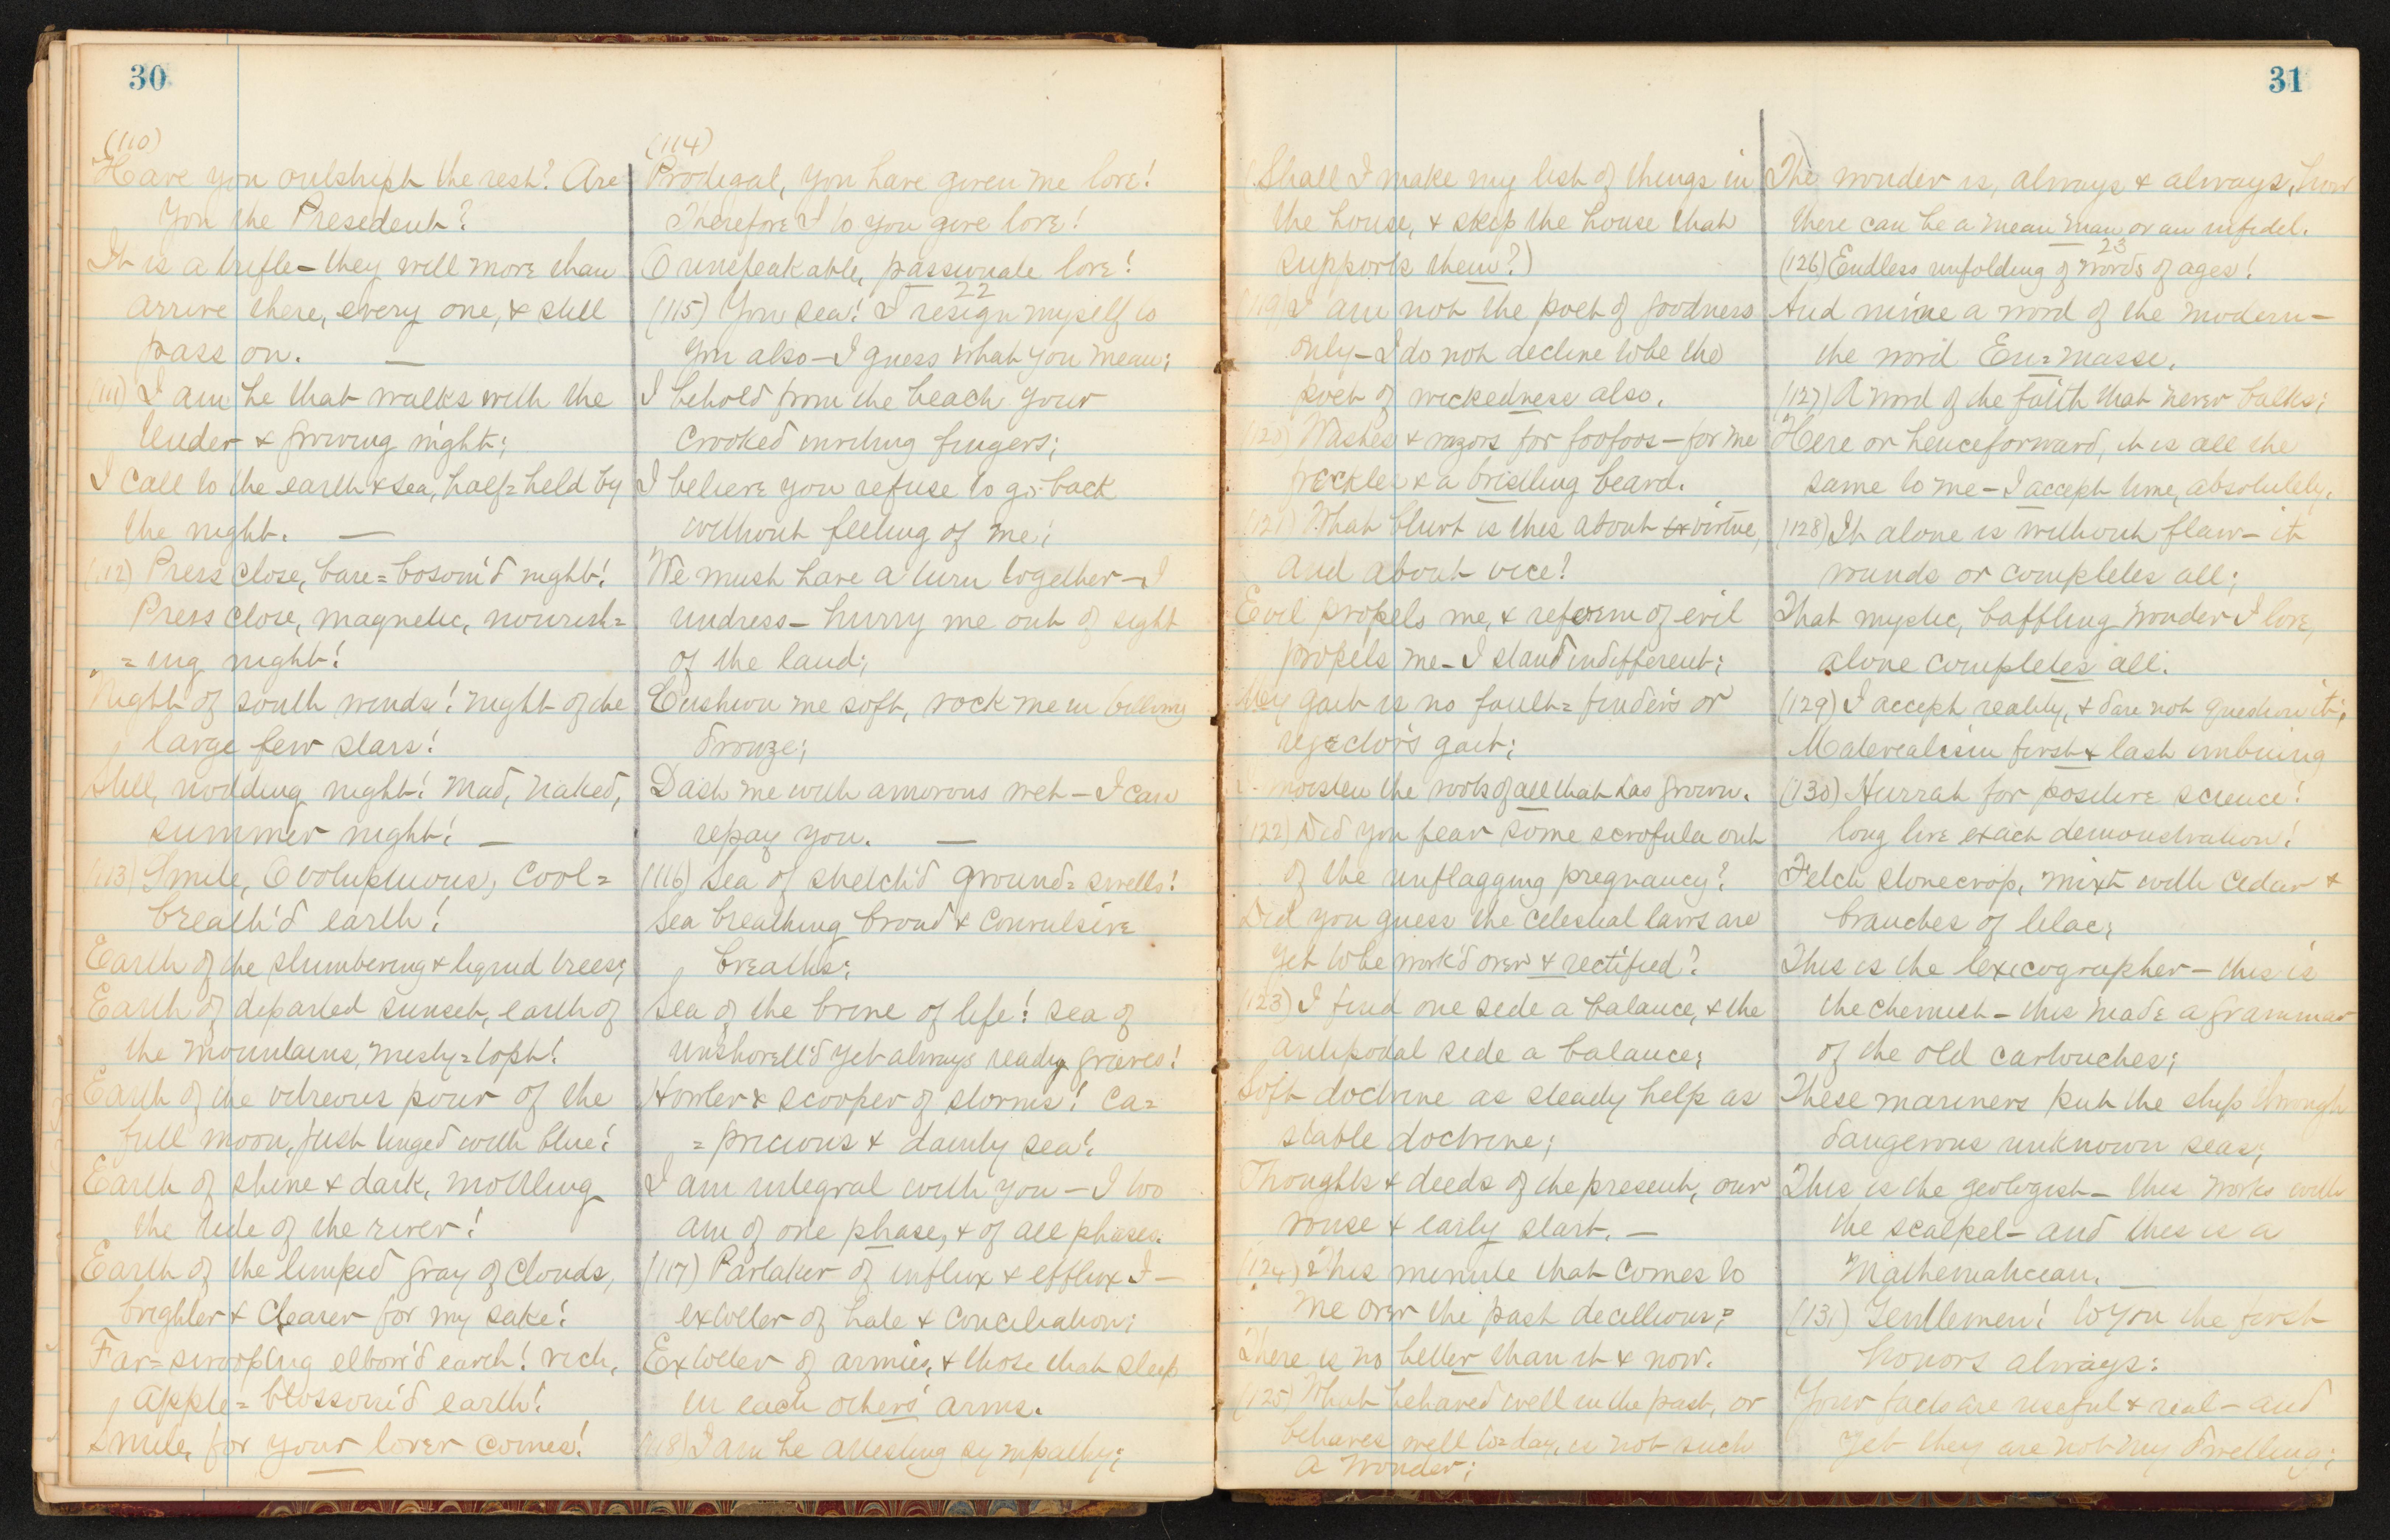 30
(110)
Have you outstript the rest? Are
you the Presedent?
It is a trifle - they will more than
arrive there, every one, & still
pass on. —
(111) I am he that walks with the
tender & growing night;
I call to the earth & sea, half=held by
the night. —
(112) Press close, bare=bosom'd night!
Press close, magnetic, nourish=
=ing night!
Night of south winds! night of the
large few stars!
Still, nodding night! Mad, naked,
summer night! —
(113) Smile, O voluptuous, cool=
breath'd earth!
Earth of the slumbering & liquid trees;
Earth of departed sunset, earth of
the mountains, misty=topt!
Earth of the vitreous pour of the
full moon, just tinged with blue!
Earth of shine & dark, mottling
the tide of the river!
Earth of the limpid gray of clouds,
brighter & clearer for my sake!
Far=swooping elbow'd earth! rich,
apple=blossom'd earth!
Smile, for your lover comes!
(114)
Prodigal, you have given me love!
Therefore I to you give love!
O unspeakable, passionate love!
22
(115) You sea! I resign myself to
you also - I guess what you mean;
I behold from the beach your
crooked inviting fingers;
I believe you refuse to go back
without feeling of me;
We must have a turn together - I
undress - hurry me out of sight
of the land;
Cushion me soft, rock me in billowy
drowze;
Dash me with amorous wet - I can
repay you. —
(116) Sea of stretch'd ground=swells!
Sea breathing broad & convulsive
breaths;
Sea of the brine of life! sea of
unshovell'd yet always ready graves!
Howler & scooper of storms! Ca=
=pricious & dainty sea!
I am integral with you - I too
am of one phase, & of all phases.
(117) Partaker of influx & efflux I -
extoller of hate & conciliation;
Extoller of armies, & those that sleep
in each others' arms.
(118) I am he attesting sympathy;
31
(Shall I make my list of things in
the house, & skip the house that
supports them?)
(119) I am not the poet of goodness
only - I do not decline to be the
poet of wickedness also.
(120) Washes & razors for foofoos - for me
freckles & a bristling beard.
(121) What blurt is this about virtue,
and about vice?
Evil propels me, & reform of evil
propels me - I stand indifferent;
My gait is no fault=finder's or
rejector's gait;
I moisten the roots of all that has grown.
(122) Did you fear some scrofula out
of the unflagging pregnancy?
Did you guess the celestial laws are
yet to be work'd over & rectified?
(123) I find one side a balance, & the
antipodal side a balance;
Soft doctrine as steady help as
stable doctrine;
Thoughts & deeds of the present, our
rouse & early start. —
(124) This minute that comes to
me over the past decillions;
There is no better than it & now.
(125) What behaved well in the past, or
behaves well to=day, is not such
a wonder;
The wonder is, always & always, how
there can be a mean man or an infidel.
23
(126) Endless unfolding of words of ages!
And mine a word of the modern -
the word En=masse.
(127) A word of the faith that never balks;
Here or henceforward, it is all the
same to me - I accept time, absolutely.
(128) It alone is without flaw - it
rounds or completes all;
That mystic, baffling wonder I love,
alone completes all.
(129) I accept reality, & dare not question it;
Materealism first & last imbuing
(130) Hurrah for positive science!
long live exact demonstration!
Fetch stonecrop, mixt with cedar &
branches of lilac;
This is the lexicographer - this is
the chemist - this made a grammar
of the old cartouches;
These mariners put the ship through
dangerous unknown seas;
This is the geologist - this works with
the scalpel - and this is a
Mathematician. —
(131) Gentlemen! to you the first
honors always:
Your facts are useful & real - and
yet they are not my dwelling;